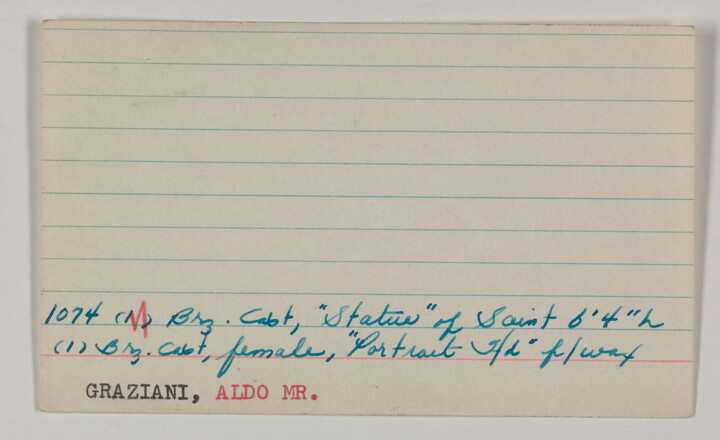 1074 (1) Brz. Cast, "Statue" of Saint 6'4"h
(1) Brz. Cast, female, "Portrait " f/wax
GRAZIANI, ALDO MR.